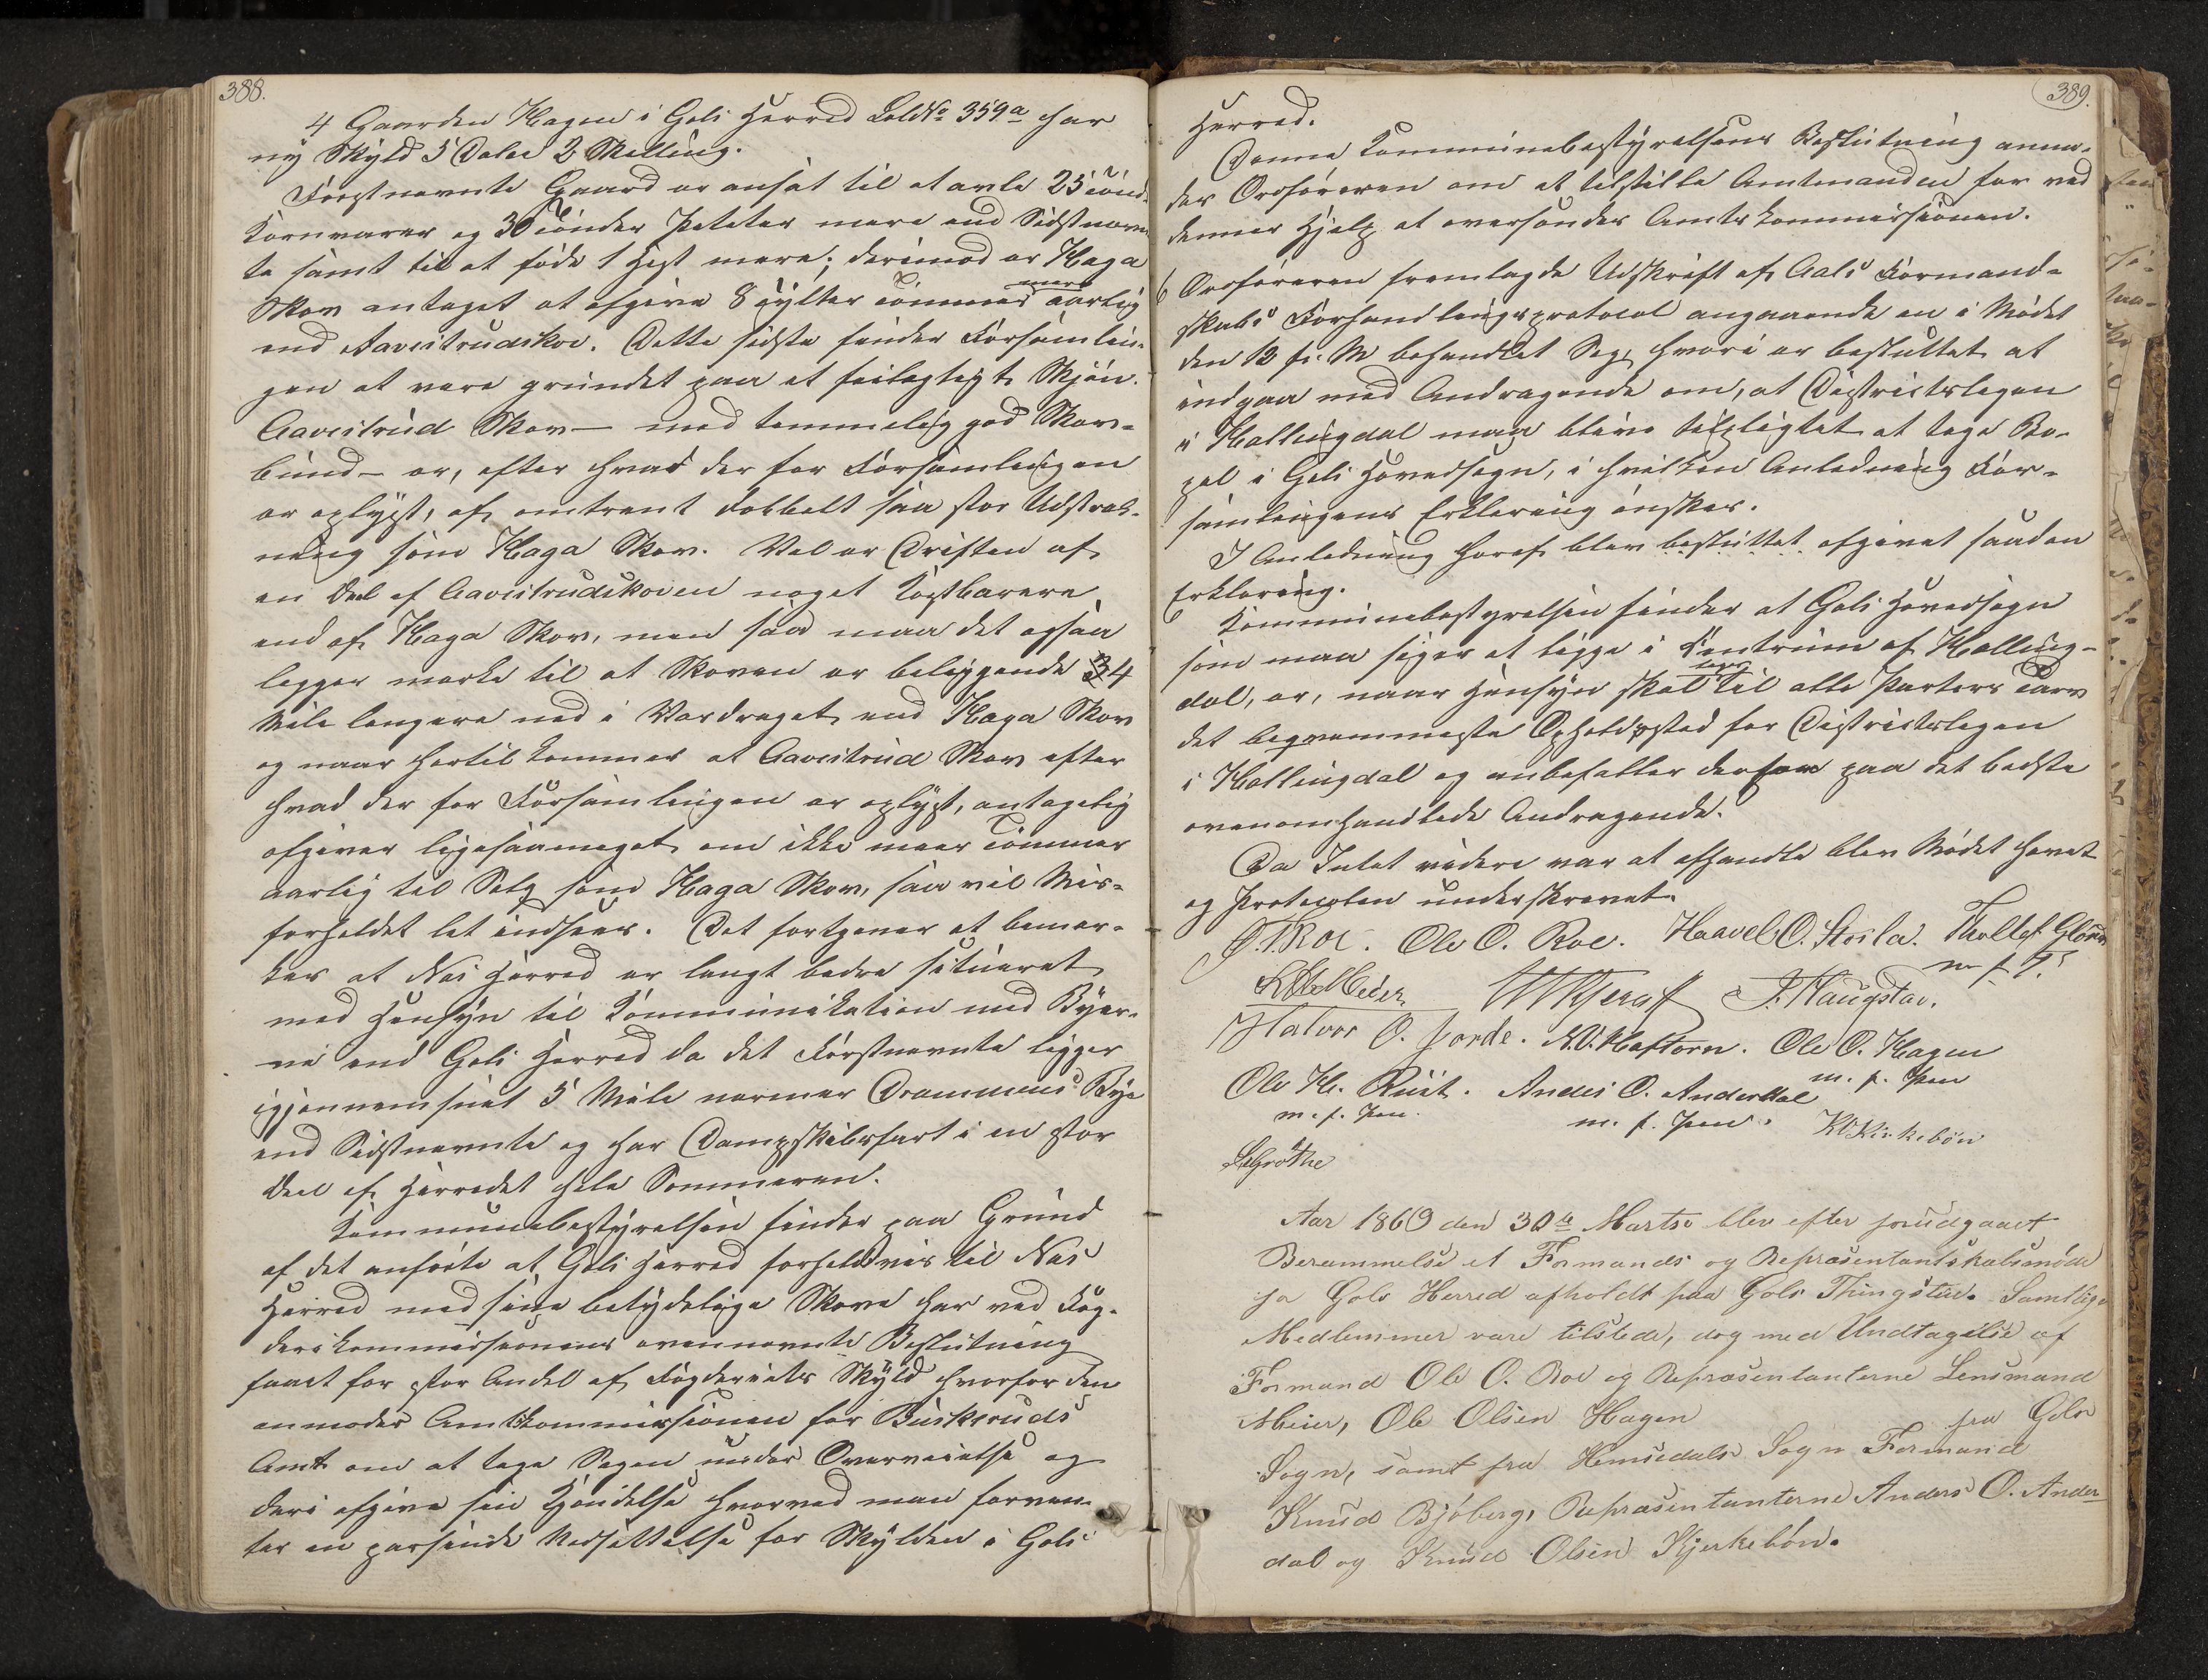 388.
4 Gaarden Hagen i Gols Herred LøbNo 359a har
ny Skyld 5 Daler 2 Skilling.
Førstnævnte Gaard er ansat til at avle 25 Tønd.
Kornvarer og 30 Tønder Poteter mere end Sidstnævn-
te samt til at føde 1 Hest mere; derimod er Haga
Skov antaget at afgive 8 Tylter Tømmer mere aarlig
end Aavestrudskov. Dette sidste finder Forsamlin-
gen at være grundet paa et feilagtigt Skjøn.
Aavestrud Skov – med temmelig god Skov-
bund – er, efter hvad der for Forsamlingen
er oplyst, af omtrent dobbelt saa stor Udstræk-
ning som Haga Skov. Vel er Driften af
en Deel af Aavestrudskoven noget kostbarere
end af Haga Skov, men saa maa det ogsaa
legges mærke til at Skoven er beliggende 4
Mile længere ned i Vasdraget end Haga Skov
og naar hertil kommer at Aavestrud Skov efter
hvad der for Forsamlingen er oplyst, antagelig
afgiver ligesaameget om ikke meer Tømmer
aarlig til Salg som Haga Skov, saa vil Mis-
forholdet let indsees. Det fortjener at bemær-
kes at Nes Herred er langt bedre situeret
med Hensyn til Kommunikation med Byer-
ne end Gols Herred da det Førstnævnte ligger
igjennemsnit 5 Mile nærmer Drammens Bye
end Sidstnævnte og har Dampskibsfart i en stor
Deel af Herredet hele Sommeren.
Kommunebestyrelsen finder paa Grund
af det anførte at Gols Herred forholdsvis til Nes
Herred med sine betydelige Skove har ved Fog-
derikommissionens ovennævnte Beslutning
faaet for stor Andel af Fogderiets Skyld hvorfor den
anmoder Amtskommissionen for Buskeruds
Amt om at tage Sagen under Overveielse og
deri afgive sin Kjendelse hvorved man forven-
ter en passende Nedsættelse for Skylden i Gols
389.
Herred.
Denne Kommunebestyrelsens Beslutning anmo-
des Ordføreren om at tilstille Amtmanden for ved
dennes Hjelp at oversendes Amtskommissionen.
6 Ordføreren fremlagde Udskrift af Aals Formand-
skabs Forhandlingsprotocol angaaende en i Mødet
den 12 f. M behandlet Sag, hvori er besluttet at
indgaa med Andragende om, at Districtslægen
i Hallingdal maa blive tilpligtet at tage Bo-
pæl i Gols Hovedsogn, i hvilken Anledning For-
samlingens Erklæring ønskes.
I Anledning heraf blev besluttet afgivet saadan
Erklæring.
Kommunebestyrelsen finder at Gols Hovedsogn
som man siger at ligge i Centrum af Halling-
dal, er, naar Hensyn skal tages til alle Parters Tarv
det beqvemmeste Opholdssted for Districtslægen
i Hallingdal og anbefaller derfor paa det bedste
ovenomhandlede Andragende.
Da Intet videre var at afhandle blev Mødet hævet
og Protocollen underskrevet.
O. T. Roe. Ole O. Roe. Haavel O. Storla. Thollef Gløim
m. f. P.
Meier J. Haugstad.
Halvor O. Jorde. N.O. Haftorn. Ole O. Hagen
m. f. Pen
Ole H. Rust. Anders O. Anderdal
m. f. Pen. m. f. Pen. KO Kirkebøn
Grøthe
Aar 1869 den 30te Marts blev efter forudgaaet
Berammelse et Formands og Repræsentantskabsmøde
for Gols Herred afholdt paa Gols Thingstue. Samtlige
Medlemmer vare tilstede, dog med Undtagelse af
Formand Ole O. Roe og Repræsentanterne Lensmand
Meier, Ole Olsen Hagen fra Gols
Sogn, samt fra Hemsedals Sogn Formand
Knud Bjøberg, Repræsentanterne Anders O. Ander-
dal og Knud Olsen Kjerkebøn.